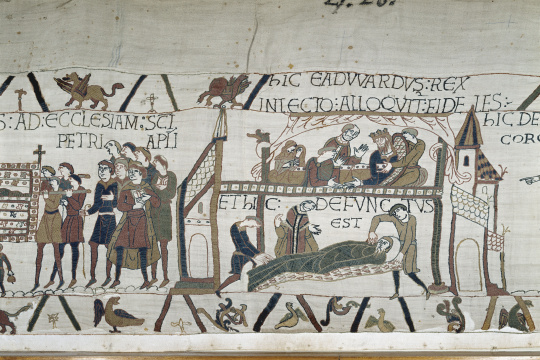 S: AD: ECCLESIAM: SCI
PETRI APLI
hIC EADWARDVS: REX
IN LECTO: ALLOQVIT: FIDELES:
ET hIC: DEFVNCTVS
EST
hIC DE